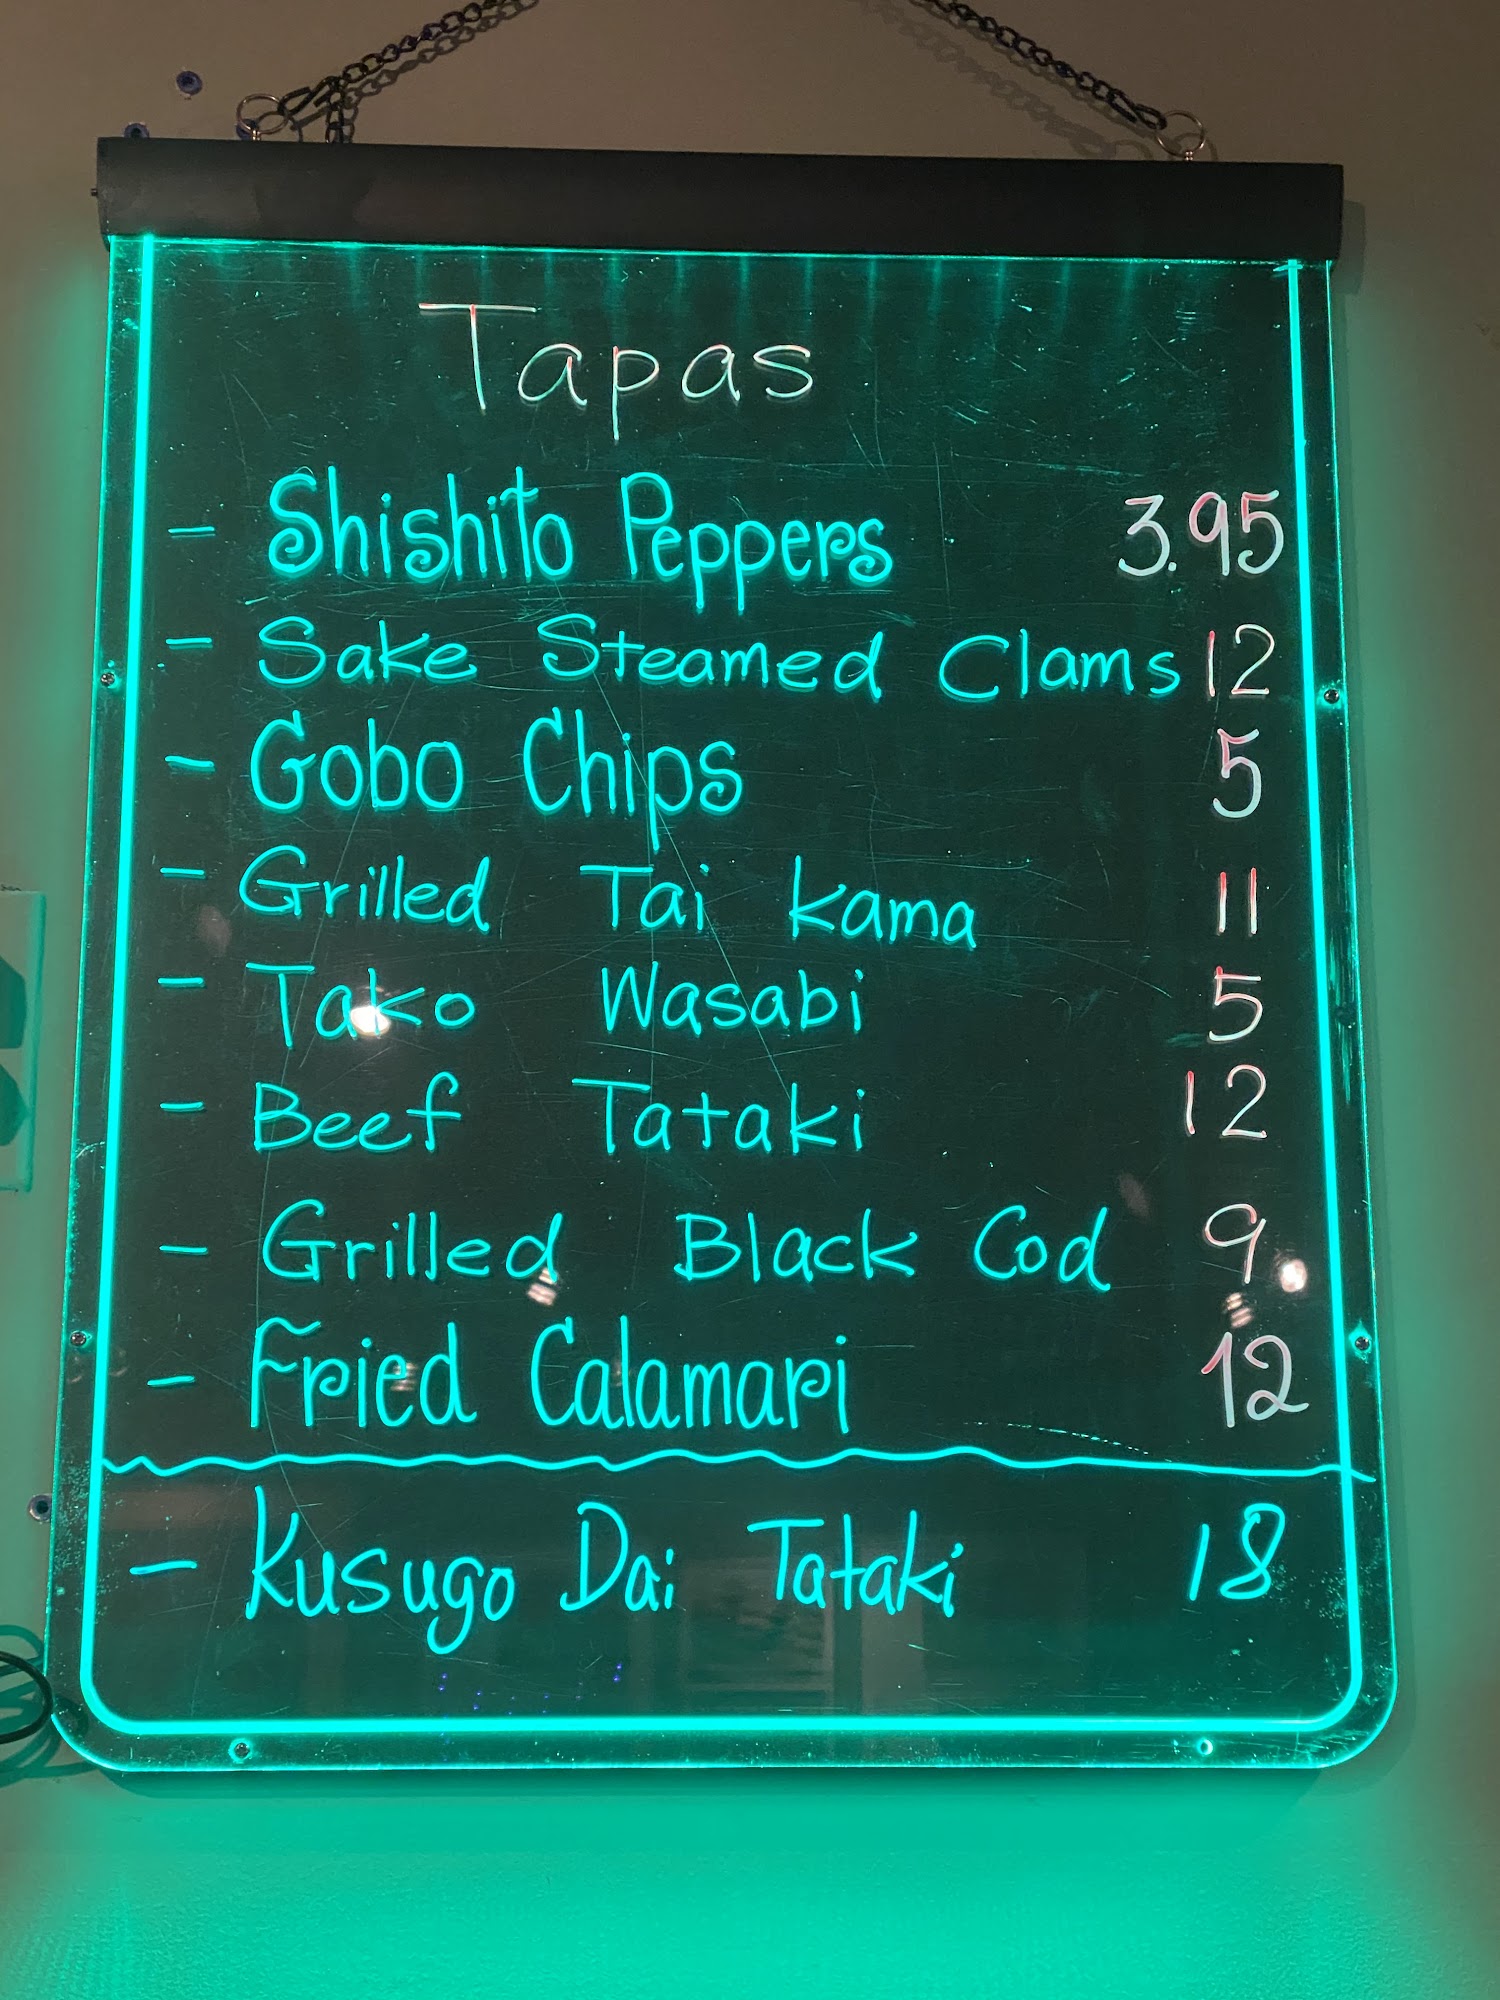 Tapas
- Shishito Peppers 3.95
- Sake Steamed Clams 12
- Gobo Chips 5
- Grilled Tai Kama 11
- Tako Wasabi 5
- Beef Tataki 12
- Grilled Black Cod 9
- Fried Calamari 12
- Kusugo Dai Tataki 18